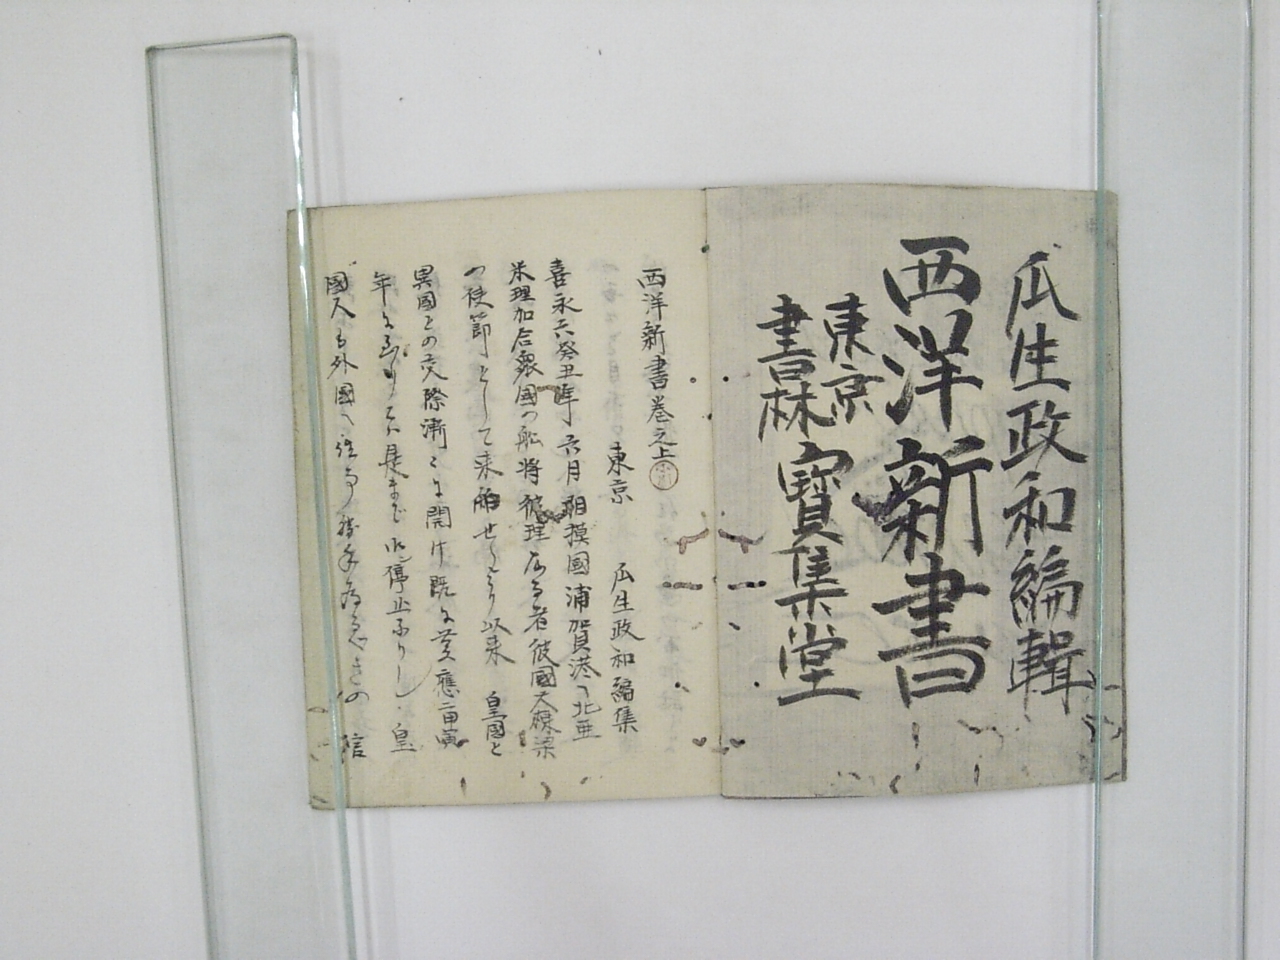 瓜生政和編輯
西洋新書
東京
書林
寳集堂
西洋新書巻之上
東京 瓜生政和編集
喜永六癸丑年六月相摸國浦賀港へ北亜
米理加合衆国の舩将彼理なる者彼國大統領
の使節として来舶せしより以来 皇国と
異国との交際漸々に開け既に慶應二丙寅
年に至りては是まで御停止なりし 皇
國人も外國へ